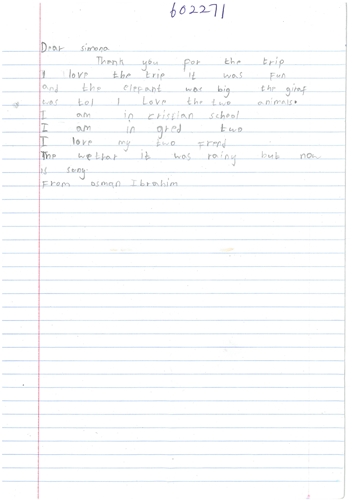 602271
Dear simona
Thank you for the trip
I love the trip it was fun
and the elepant was big the giraf
was tol I love the two animals.
I am in cristian school
I am in gred two
I love my two frend
The wethar it was rainy but now
is sony.
From usman Ibrahim